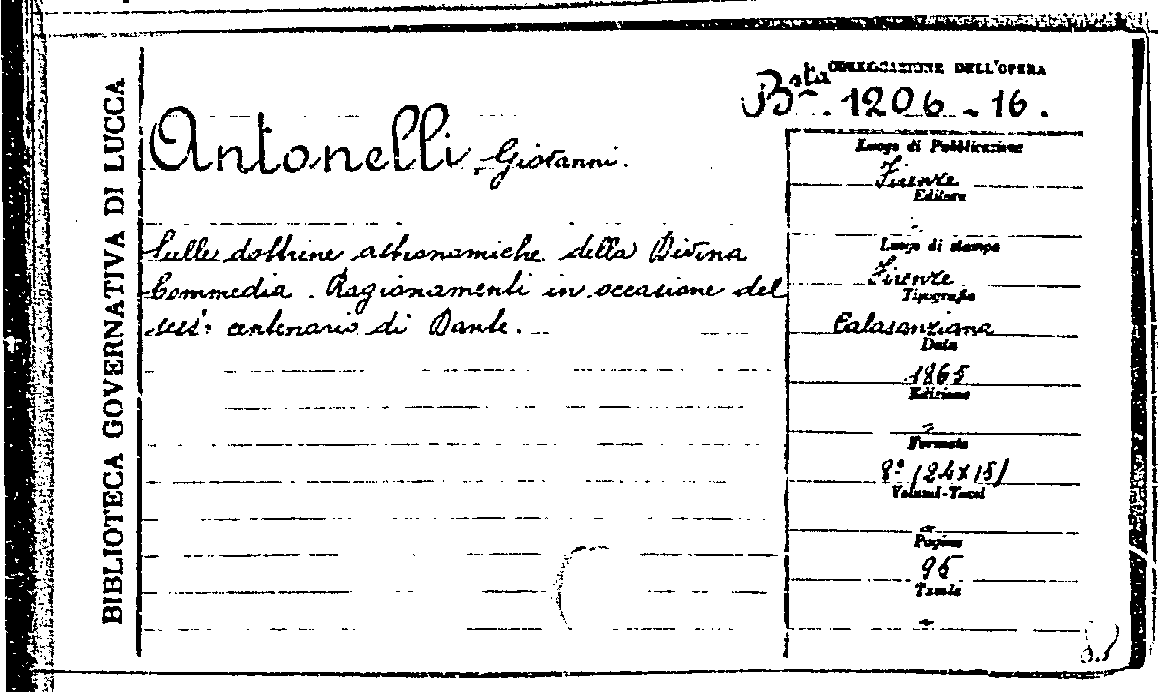 BIBLIOTECA GOVERNATIVA DI LUCCA
COLLOCAZIONE DELL'OPERA
B.ta 1206 - 16.
Antonelli, Giovanni.
Sulle dottrine astronomiche della Divina
Commedia. Ragionamenti in occasione del
sest: centenario di Dante.
Luogo di Pubblicazione
Firenze
Editore
Luogo di stampa
Firenze
Tipografia
Calasanziana
Data
1865
Edizione
Formato
8° (24x15)
Volumi-Tomi
Pagine
95
Tavole